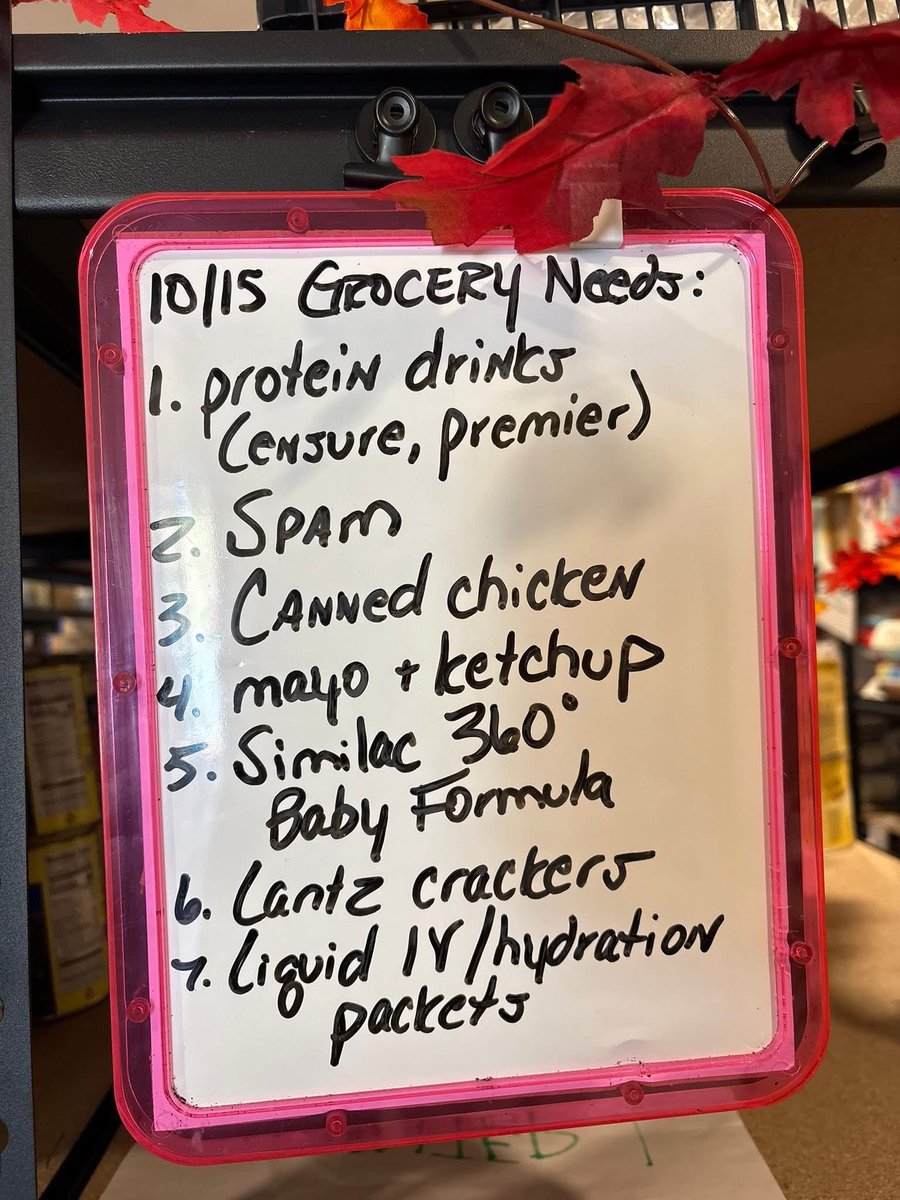 10/15 GROCERY Needs:
1. protein drinks
(ensure, premier)
2. SPAM
3. CANNed chicken
4. mayo + ketchup
5. Similac 360°
Baby Formula
6. Lantz crackers
7. Liquid IV/hydration
packets